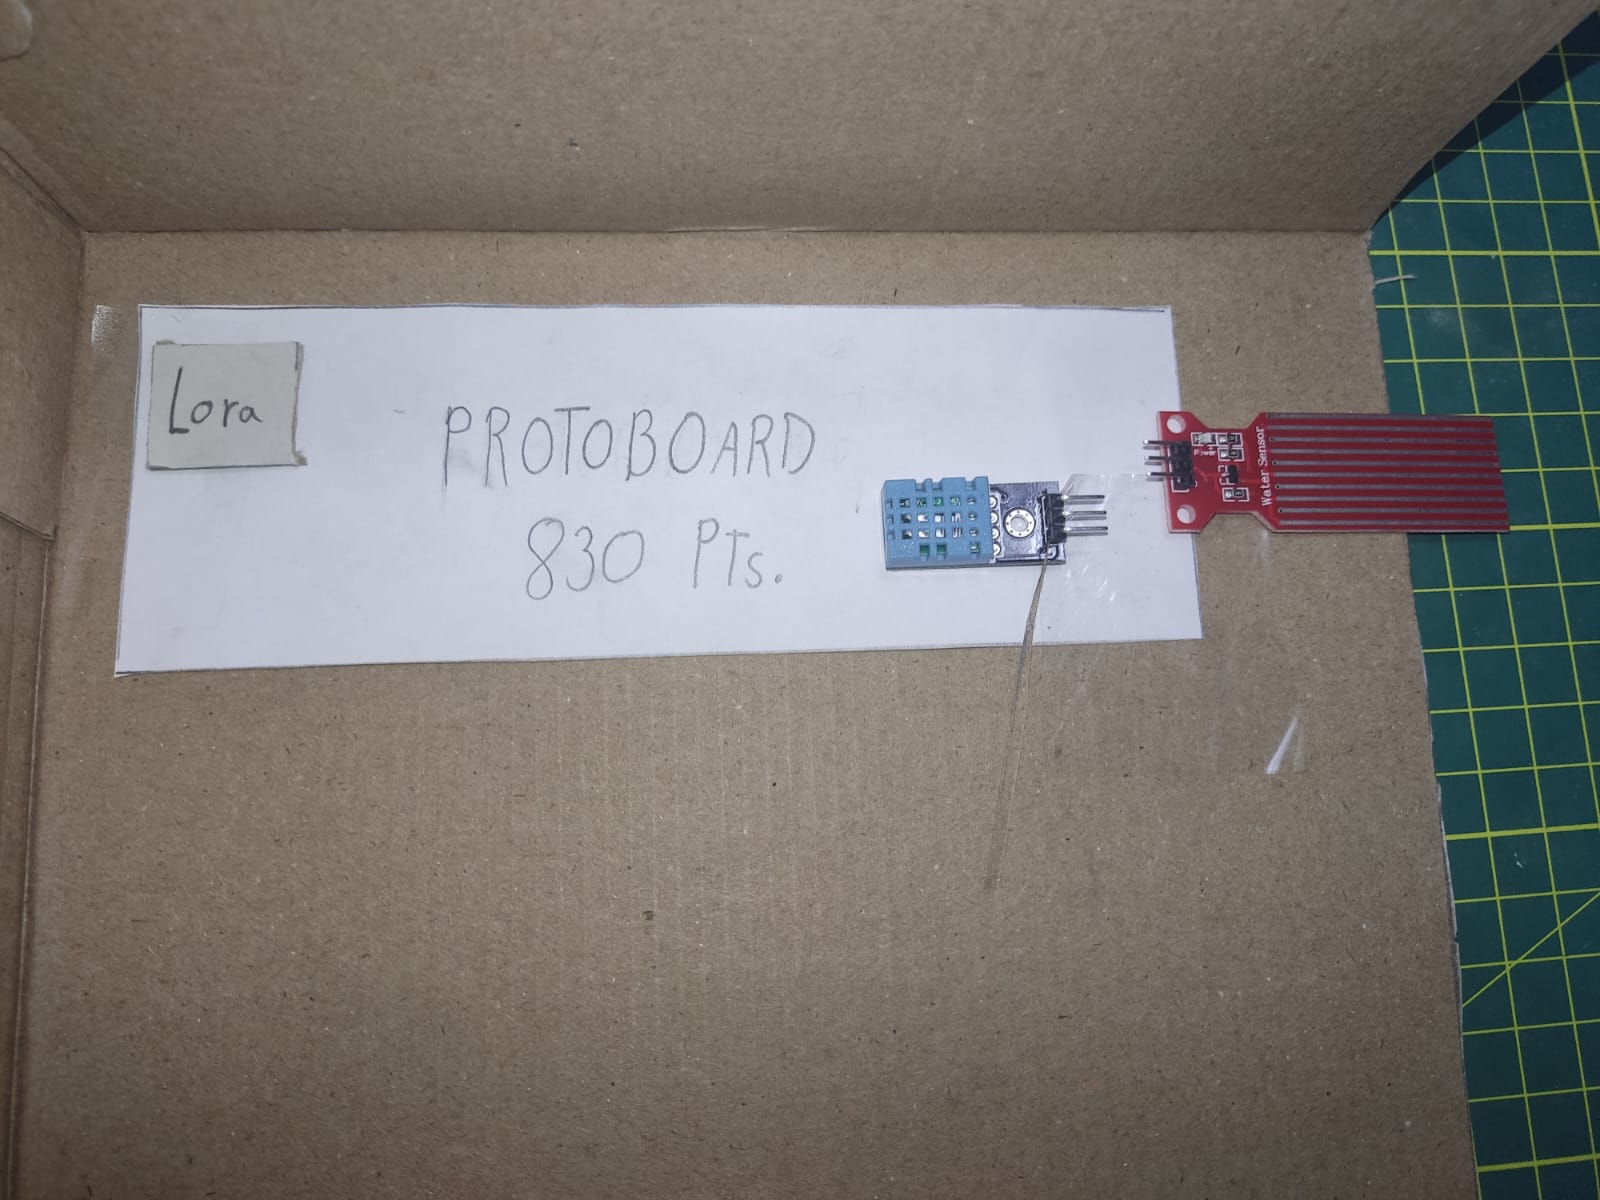 Lora
PROTOBOARD
830 PTs.
Power
Water Sensor